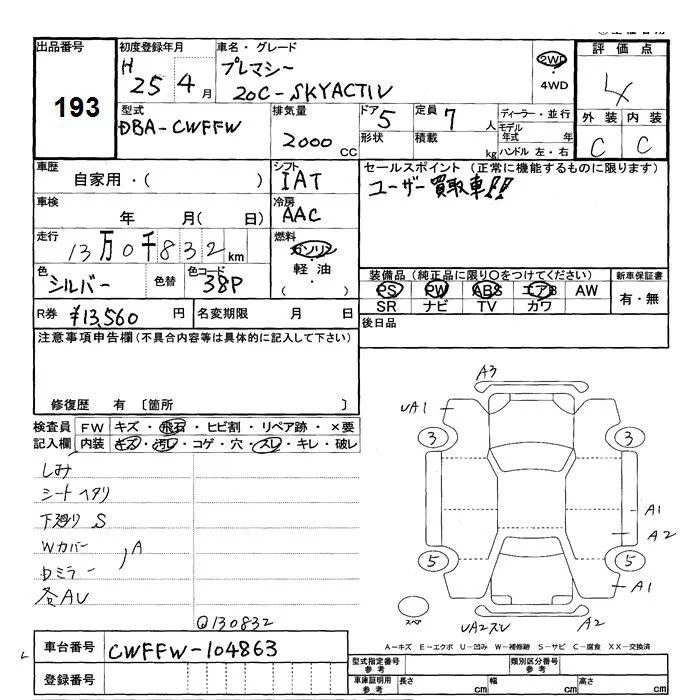 出品番号
193
初度登録年月
H 25年 4月
車名・グレード
プレマシー
20C-SKYACTIV
2WD
・
4WD
評価点
4
外装 内装
C C
型式
DBA-CWFFW
排気量
2000 CC
ドア 5
形状
定員 7 人
積載 kg
ディーラー・並行
モデル年式 年
ハンドル 左・右
車歴
自家用・( )
シフト
IAT
セールスポイント (正常に機能するものに限ります)
ユーザー買取車!!
車検
年 月( 日)
冷房
AAC
走行
13万0千832km
燃料
ガソリン
・
軽油
( ・ )
色
シルバー
色替
色コード
38P
装備品(純正品に限り○をつけてください)
PS PW ABS エアB AW
SR ナビ TV カワ
新車保証書
有・無
R券 ¥13,560 円
名変期限 月 日
後日品
注意事項申告欄(不具合内容等は具体的に記入して下さい)
修復歴 有 〔箇所 〕
検査員 FW キズ・飛石・ヒビ割・リペア跡・×要
記入欄 内装 キズ・汚レ・コゲ・穴・スレ・キレ・破レ
しみ
シートヘタリ
下廻り S
Wカバー
Dミラー , A
各AU
Q130832
A3
UA1
3 3
A1
A2
5 5
A1
スペア
UA2スレ
A2
A-キズ E-エクボ U-凹み W-補修跡 S-サビ C-腐食 XX-交換済
車台番号 CWFFW-104863
登録番号
型式指定番号
参考
類別区分番号
参考
車庫証明用
参考
長さ cm
幅 cm
高さ cm